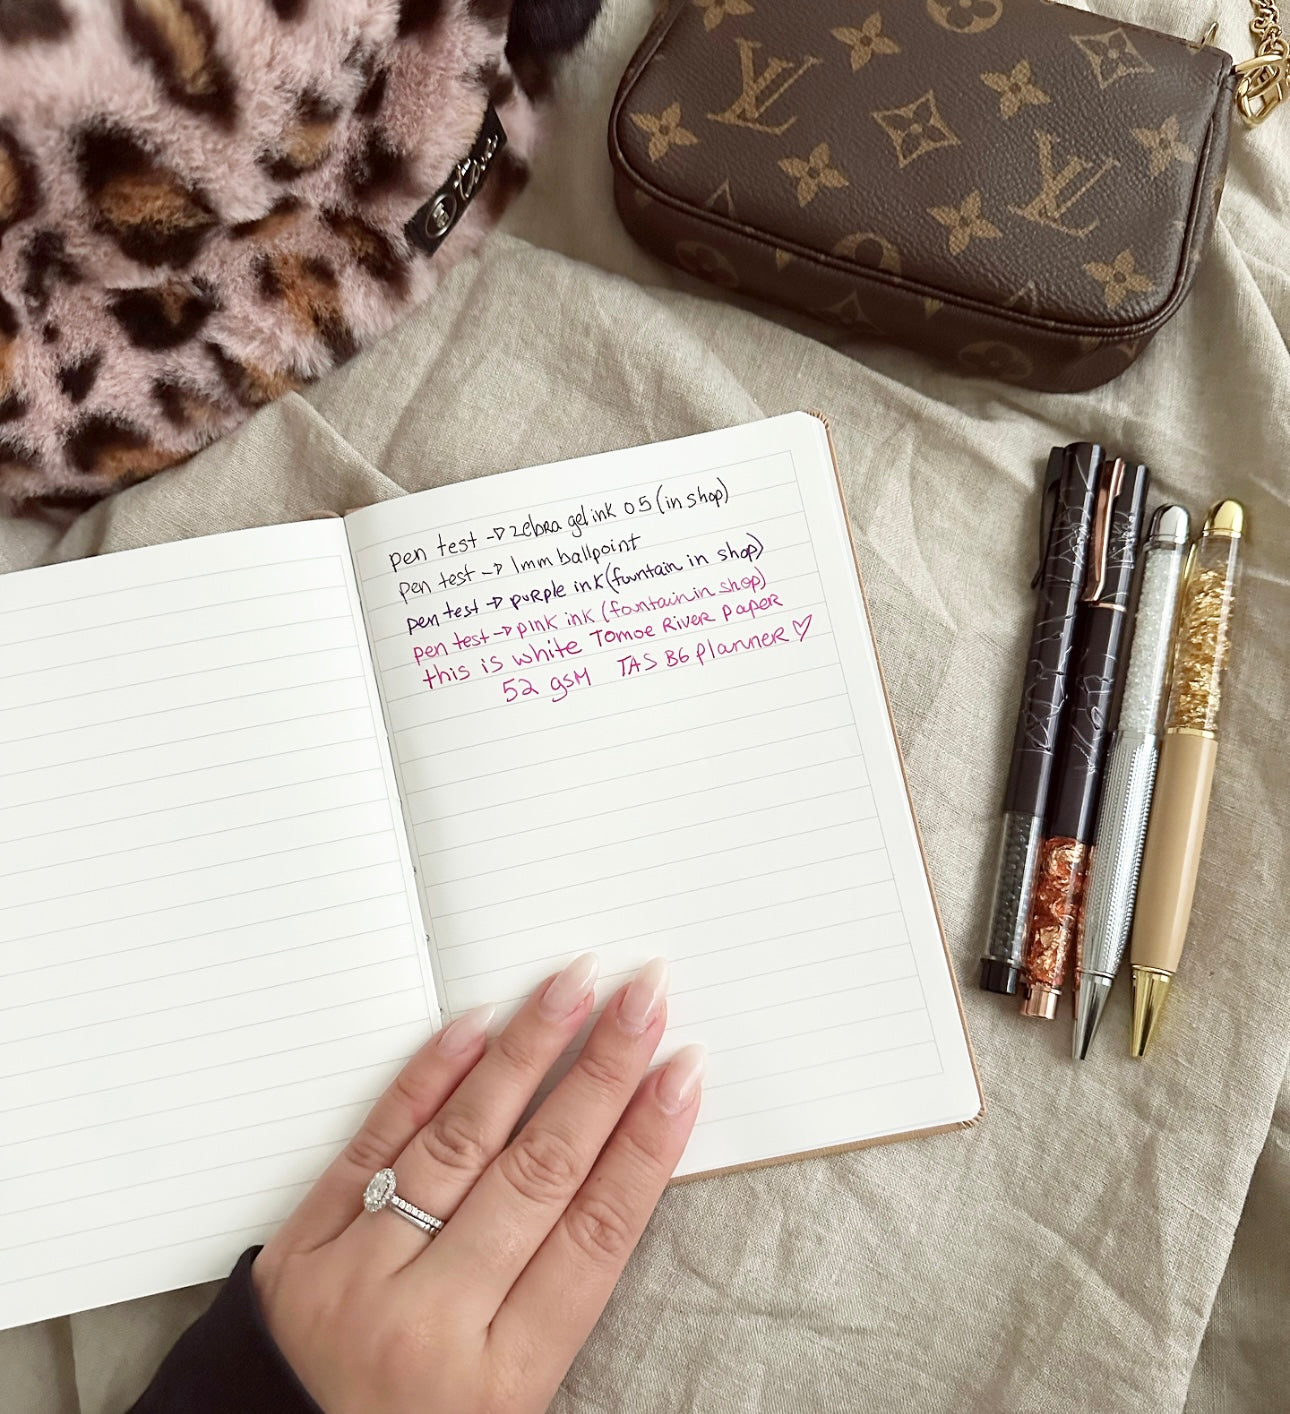 pen test → zebra gel ink 0.5 (in shop)
pen test → 1mm ballpoint
pen test → purple ink (fountain in shop)
pen test → pink ink (fountain in shop)
this is white Tomoe River paper
52 gsm TAS B6 planner ♡
LV
LV